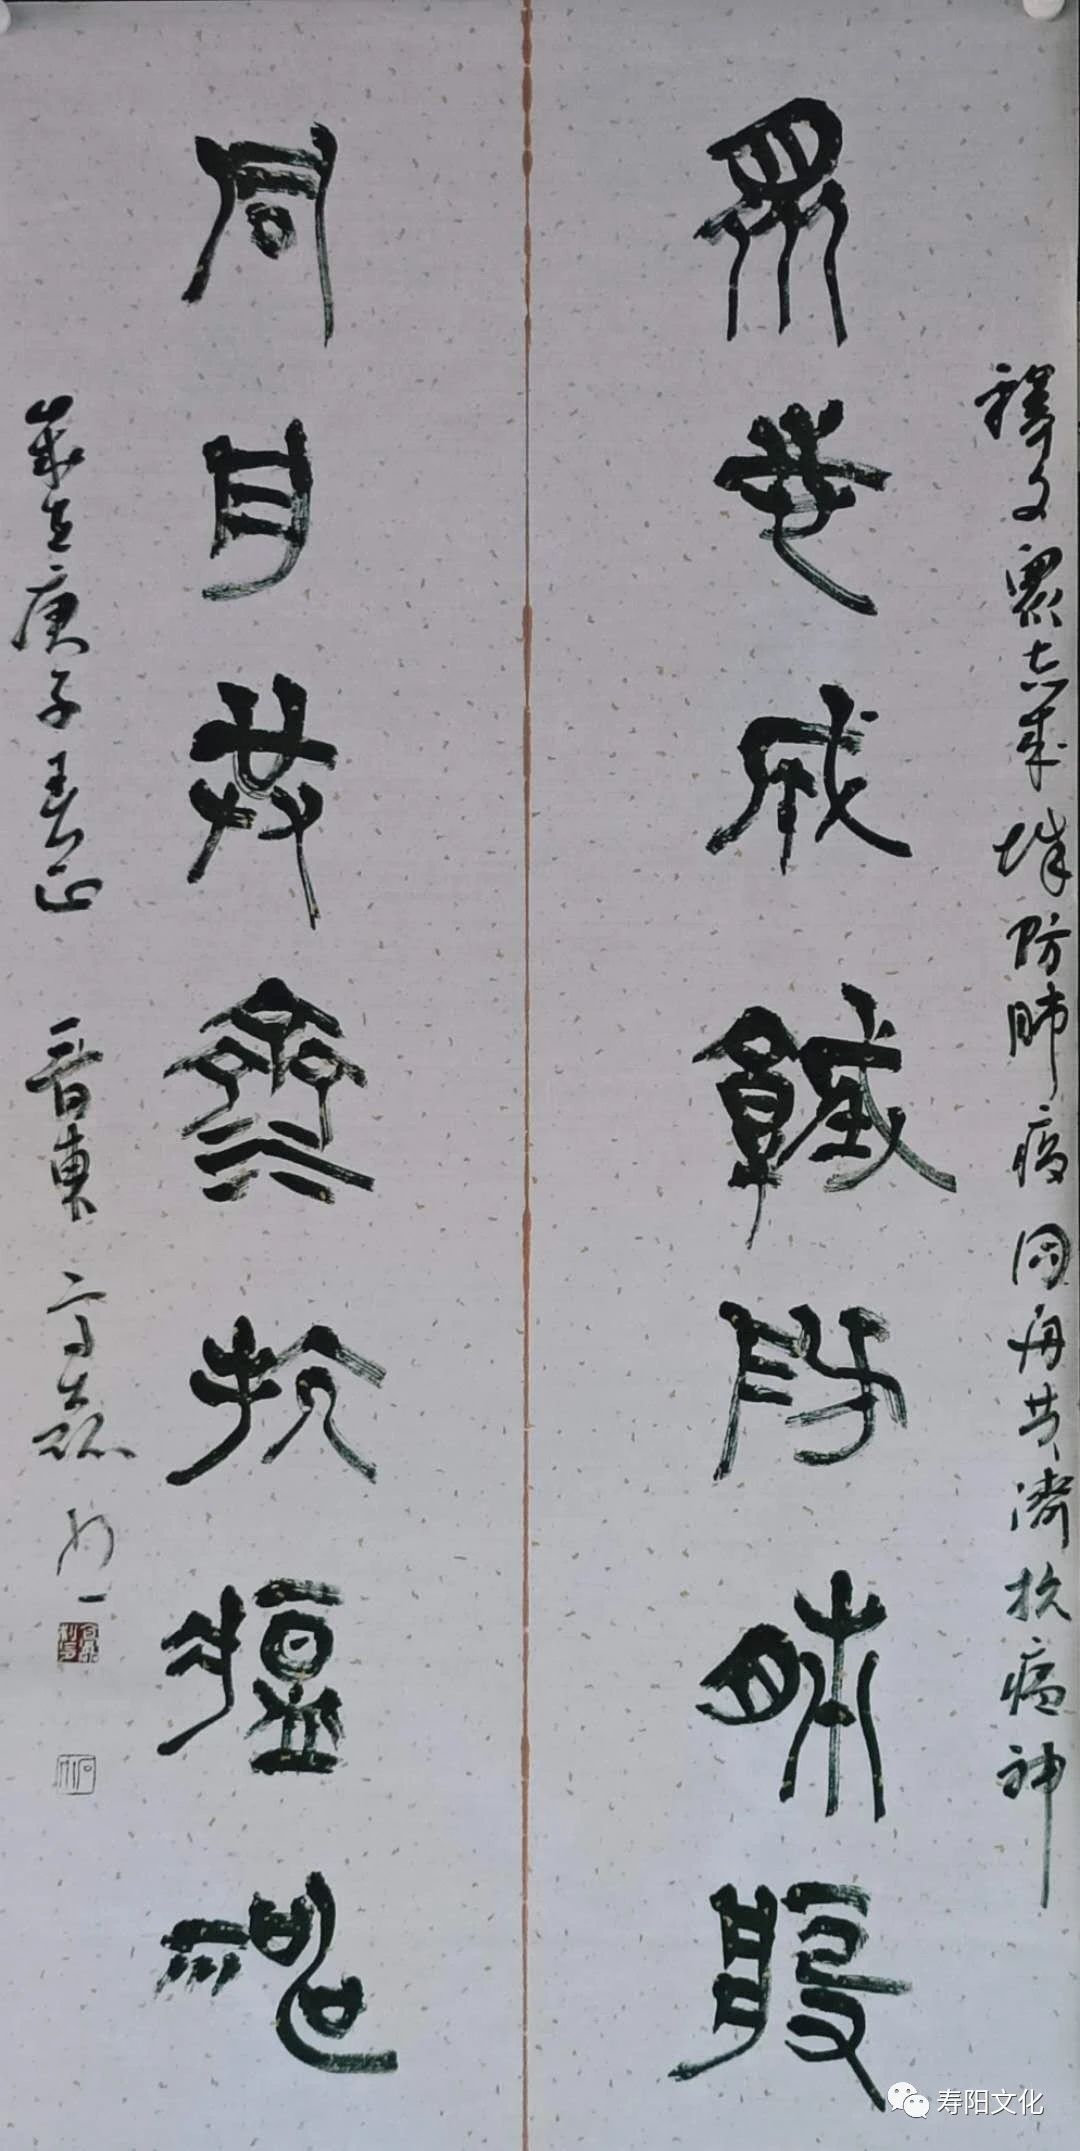 释文众志成城防肺疫同舟共济抗瘟神
众志成城防肺疫
同舟共济抗瘟神
岁在庚子春正 晋东
寿阳文化